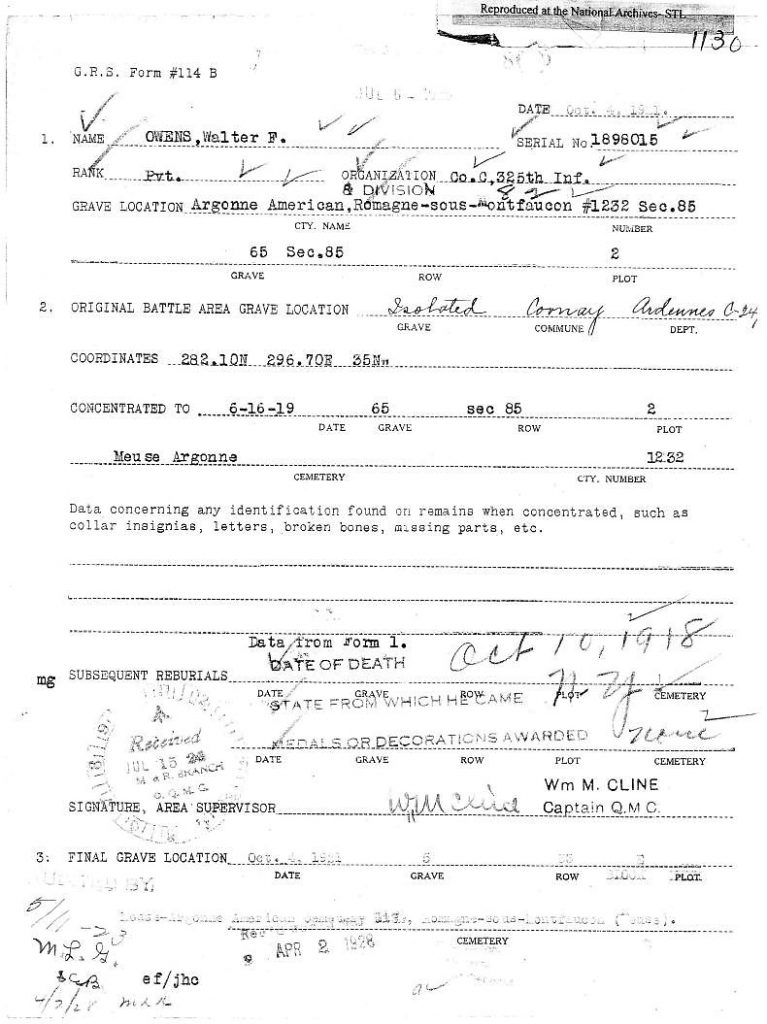 Reproduced at the National Archives- STL
1130
G.R.S. Form #114 B
JUL 6 -
DATE Oct. 4, 1921.
1. NAME OWENS,Walter F. SERIAL No 1898015
RANK Pvt. ORGANIZATION Co.C,325th Inf.
& DIVISION 82
GRAVE LOCATION Argonne American,Romagne-sous-Montfaucon #1232 Sec.85
CTY. NAME NUMBER
65 Sec.85 2
GRAVE ROW PLOT
2. ORIGINAL BATTLE AREA GRAVE LOCATION Isolated Cornay Ardennes C-24
GRAVE COMMUNE DEPT.
COORDINATES 282.10N 296.70E 35Nw
CONCENTRATED TO 6-16-19 65 sec 85 2
DATE GRAVE ROW PLOT
Meuse Argonne 1232
CEMETERY CTY. NUMBER
Data concerning any identification found on remains when concentrated, such as
collar insignias, letters, broken bones, missing parts, etc.
Data from Form 1.
DATE OF DEATH Oct 10, 1918
mg SUBSEQUENT REBURIALS
DATE GRAVE ROW PLOT CEMETERY
STATE FROM WHICH HE CAME N.Y.
MEDALS OR DECORATIONS AWARDED None
DATE GRAVE ROW PLOT CEMETERY
Received
JUL 15
M & R. BRANCH
O. Q. M. G.
Wm M. CLINE
SIGNATURE, AREA SUPERVISOR Wm M Cline Captain Q.M.C.
3. FINAL GRAVE LOCATION Oct. 4, 1921
DATE GRAVE ROW BLOCK PLOT.
Meuse-Argonne American Cemetery 1232, Romagne-sous-Montfaucon (Meuse).
CEMETERY
APR 2 1928
5/11-23
M.L.G.
ef/jhc
4/2/28